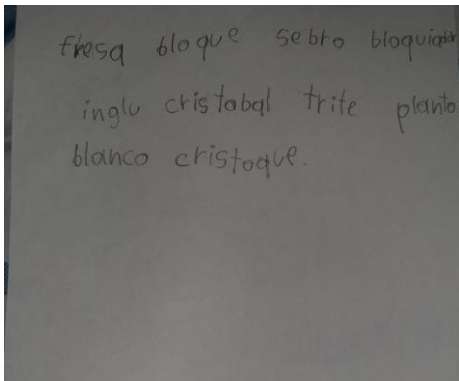 fresa bloque sebro
inglu cristobal trite planto
blanco cristoque.